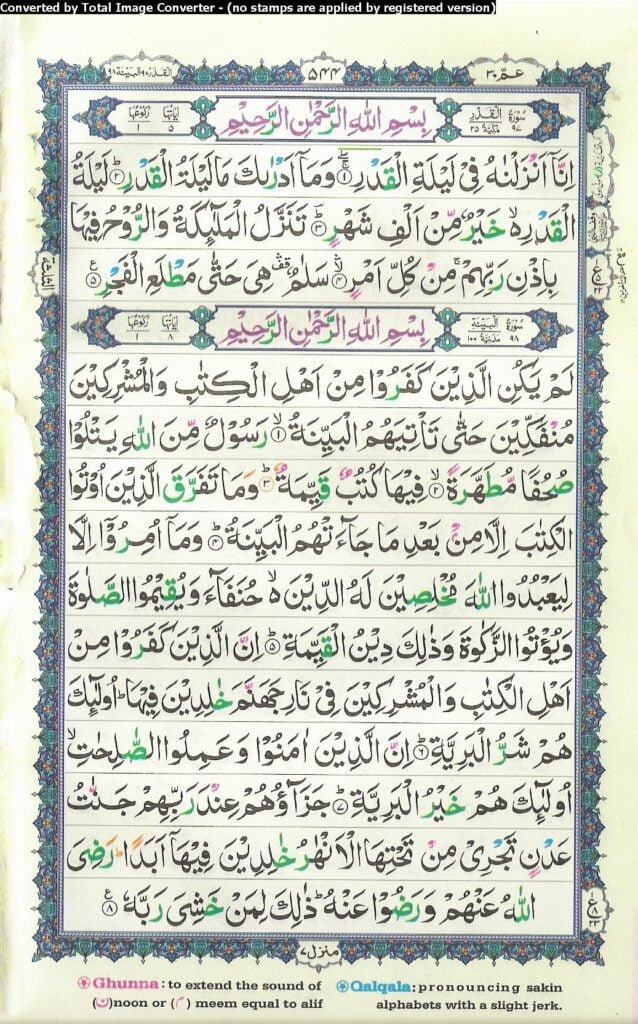 Converted by Total Image Converter - (no stamps are applied by registered version)
عمّ ٣٠
٥٤٤
القدر ٩٧ البينة ٩٨
سُوْرَةُ الْقَدْرِ
٩٧ مَكِّيَّةٌ ٢٥
بِسْمِ اللّٰهِ الرَّحْمٰنِ الرَّحِيْمِ
اٰيَاتُهَا ٥
رُكُوْعُهَا ١
اِنَّاۤ اَنْزَلْنٰهُ فِىْ لَيْلَةِ الْقَدْرِ ۚۖ‏﴿۱﴾ وَمَاۤ اَدْرٰىكَ مَا لَيْلَةُ الْقَدْرِؕ‏﴿۲﴾ لَيْلَةُ
الْقَدْرِ ۙ خَيْرٌ مِّنْ اَلْفِ شَهْرٍؕ‏﴿۳﴾ تَنَزَّلُ الْمَلٰٓئِكَةُ وَالرُّوْحُ فِيْهَا
بِاِذْنِ رَبِّهِمْ ۚ مِّنْ كُلِّ اَمْرٍ ۙۛ‏﴿۴﴾ سَلٰمٌ ۛ هِىَ حَتّٰى مَطْلَعِ الْفَجْرِ‏﴿۵﴾
سُوْرَةُ الْبَيِّنَةِ
٩٨ مَدَنِيَّةٌ ١٠٠
بِسْمِ اللّٰهِ الرَّحْمٰنِ الرَّحِيْمِ
اٰيَاتُهَا ٨
رُكُوْعُهَا ١
لَمْ يَكُنِ الَّذِيْنَ كَفَرُوْا مِنْ اَهْلِ الْكِتٰبِ وَالْمُشْرِكِيْنَ
مُنْفَكِّيْنَ حَتّٰى تَاْتِيَهُمُ الْبَيِّنَةُ ۙ‏﴿۱﴾ رَسُوْلٌ مِّنَ اللّٰهِ يَتْلُوْا
صُحُفًا مُّطَهَّرَةً ۙ‏﴿۲﴾ فِيْهَا كُتُبٌ قَيِّمَةٌ ؕ‏﴿۳﴾ وَمَا تَفَرَّقَ الَّذِيْنَ اُوْتُوا
الْكِتٰبَ اِلَّا مِنْۢ بَعْدِ مَا جَآءَتْهُمُ الْبَيِّنَةُ ؕ‏﴿۴﴾ وَمَاۤ اُمِرُوْۤا اِلَّا
لِيَعْبُدُوا اللّٰهَ مُخْلِصِيْنَ لَهُ الدِّيْنَ ۙ حُنَفَآءَ وَيُقِيْمُوا الصَّلٰوةَ
وَيُؤْتُوا الزَّكٰوةَ وَذٰلِكَ دِيْنُ الْقَيِّمَةِ ؕ‏﴿۵﴾ اِنَّ الَّذِيْنَ كَفَرُوْا مِنْ
اَهْلِ الْكِتٰبِ وَالْمُشْرِكِيْنَ فِىْ نَارِ جَهَنَّمَ خٰلِدِيْنَ فِيْهَا ؕ اُولٰٓئِكَ
هُمْ شَرُّ الْبَرِيَّةِ ؕ‏﴿۶﴾ اِنَّ الَّذِيْنَ اٰمَنُوْا وَعَمِلُوا الصّٰلِحٰتِ ۙ
اُولٰٓئِكَ هُمْ خَيْرُ الْبَرِيَّةِ ؕ‏﴿۷﴾ جَزَآؤُهُمْ عِنْدَ رَبِّهِمْ جَنّٰتُ
عَدْنٍ تَجْرِىْ مِنْ تَحْتِهَا الْاَنْهٰرُ خٰلِدِيْنَ فِيْهَاۤ اَبَدًا ؕ رَضِىَ
اللّٰهُ عَنْهُمْ وَرَضُوْا عَنْهُ ؕ ذٰلِكَ لِمَنْ خَشِىَ رَبَّهٗ‏﴿۸﴾
منزل ٧
Ghunna: to extend the sound of
(ن)noon or (م) meem equal to alif
Qalqala: pronouncing sakin
alphabets with a slight jerk.